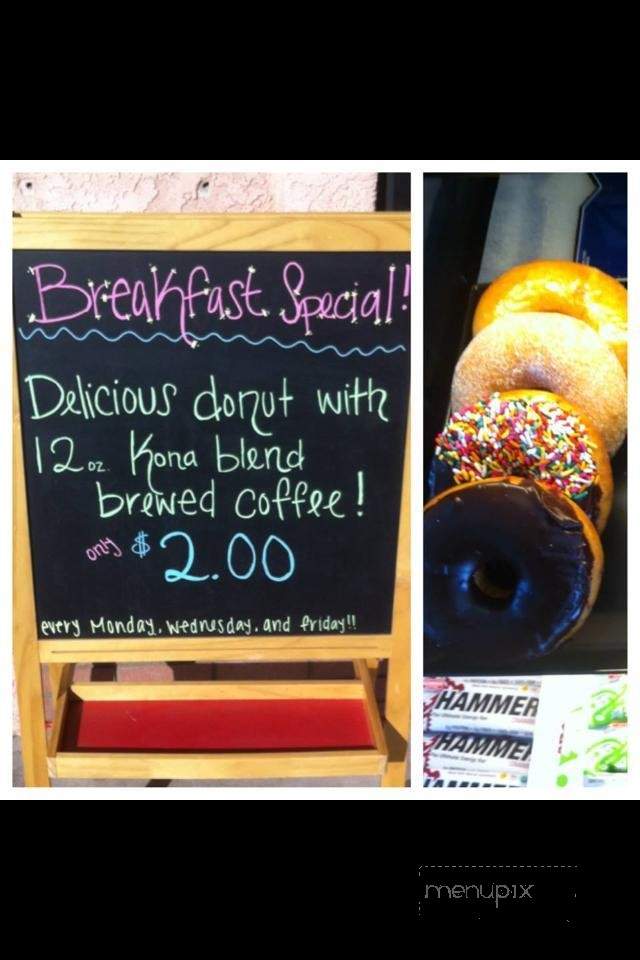 Breakfast Special!
Delicious donut with
12 oz. Kona blend
brewed coffee!
only $2.00
every Monday, wednesday, and friday!!
HAMMER
The Ultimate Energy Bar
HAMMER
HAMMER
menupix